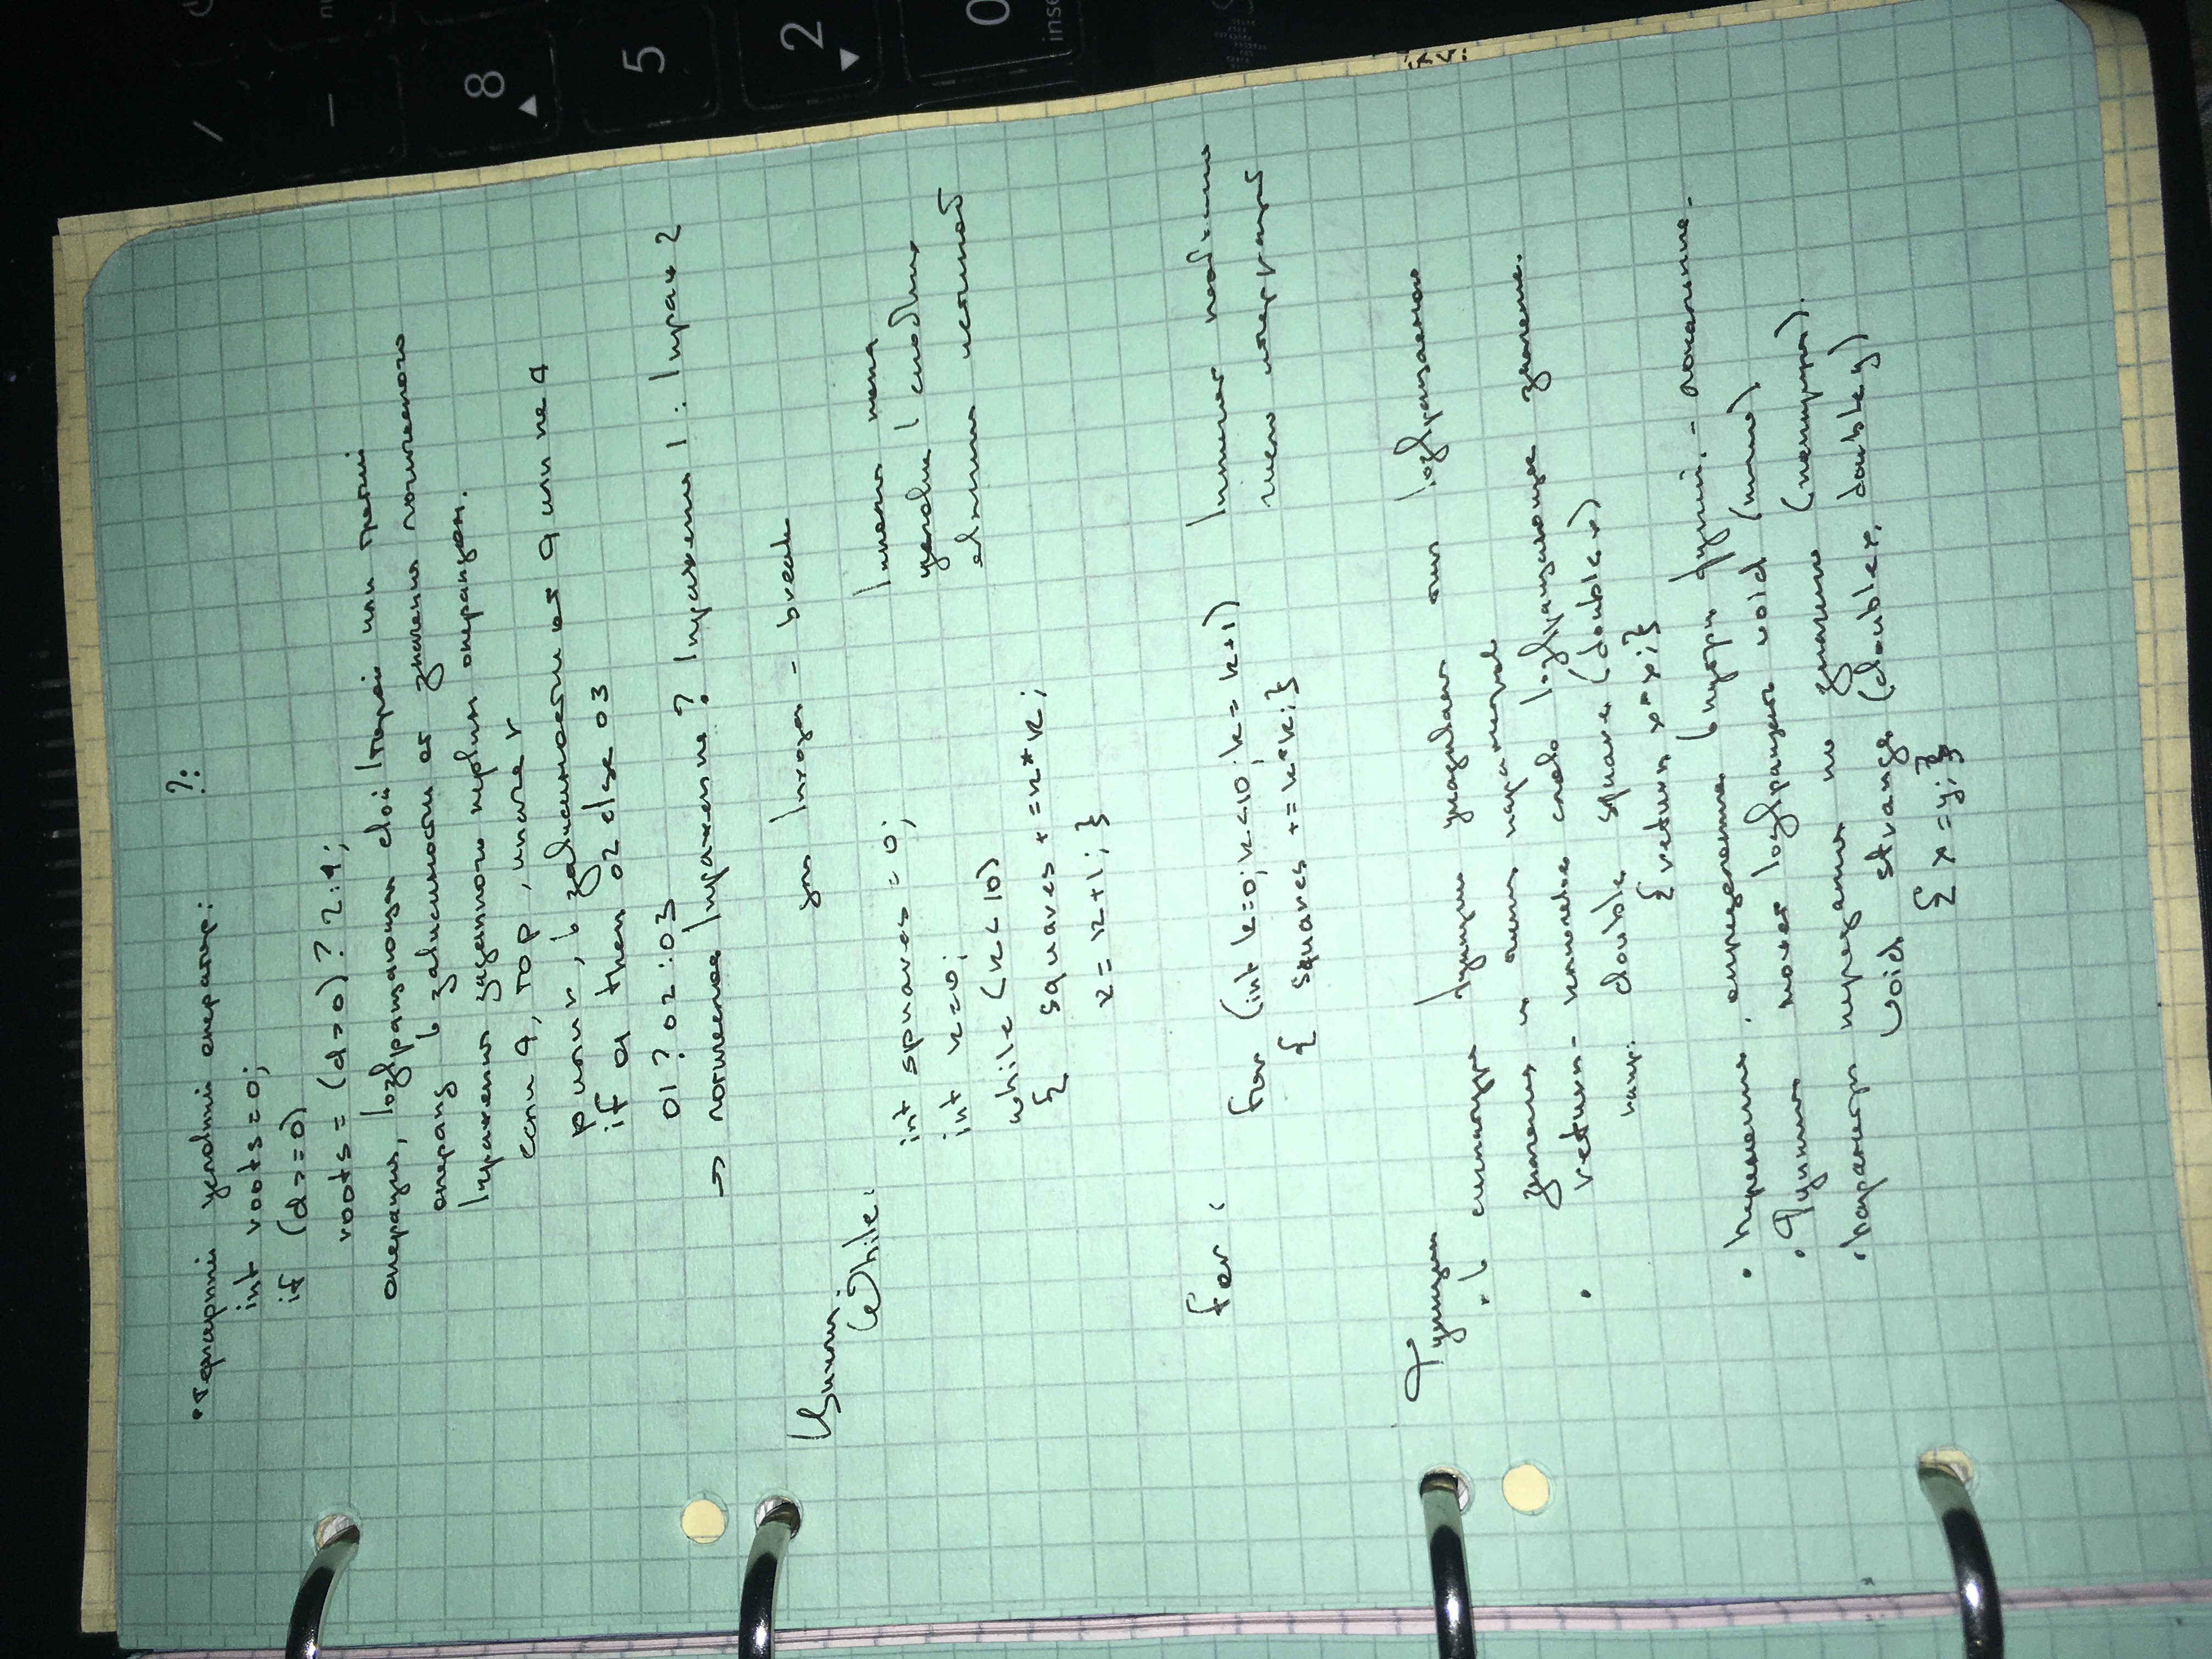 • Тернарный условный оператор: ?:
int roots = 0;
if (d >= 0)
roots = (d > 0) ? 2 : 1;
операция, возвращающая свой второй или третий
операнд в зависимости от значения логического
выражения заданного первым операндом.
если q, то p, иначе r
p или r, в зависимости от q или не q
if o1 then o2 else o3
o1 ? o2 : o3
→ логическое выражение ? выражение 1 : выраж 2
Циклы. для выхода - break
While:
int squares = 0;
int k = 0;
while (k < 10)
{ squares += k*k;
k = k+1; }
выполн пока
условие в скобках
является истиной
for:
for (int k=0; k<10; k = k+1)
{ squares += k*k; }
выполняет необходимо
число итерраций
Функции
• в сигнатуре функции указывается тип возвращаемого
значения и типы параметров
• return - ключевое слово возвращающее значение.
напр: double square (double x)
{return x*x;}
• Переменные, определенные внутри функций, - локальные.
• Функция может возвращать void (ничего)
• Параметры передаются по значению (копируются).
void strange (double x, double y)
{ x = y; }
8
5
2
0
inse